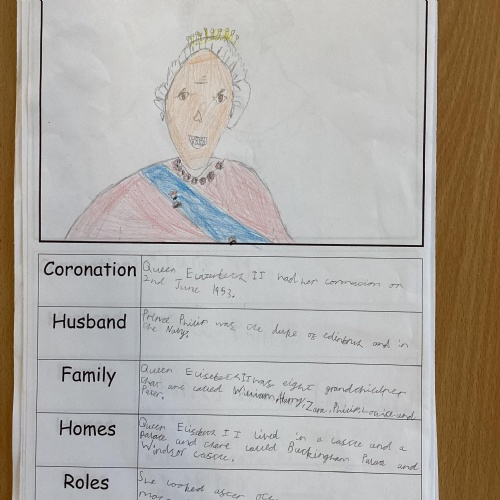 Coronation
Queen Elizerbeth II had her corronacion on
2nd June 1953.
Husband
Prince Philip was the duke of edinbruh and in
the Navy.
Family
Queen Elisebeth II has eight grandchildren
that are called William, Harry, Zara, Philip, Louise and
Peter.
Homes
Queen Elisabeth II lived in a castle and a
Palace and there called Buckingham Palace and
Windsor castle.
Roles
She looked after the